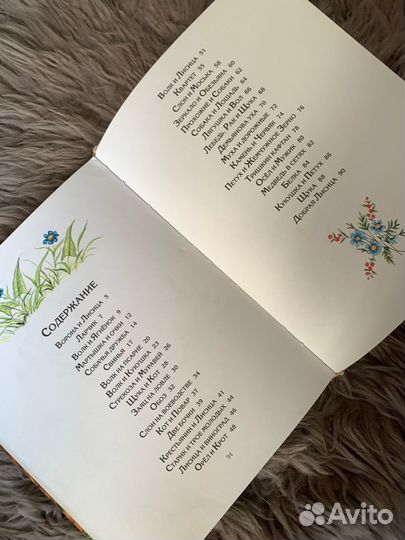 Содержание
Ворона и Лисица 5
Ларчик 7
Волк и Ягнёнок 9
Мартышка и очки 12
Собачья дружба 14
Свинья 17
Волк на псарне 20
Волк и Кукушка 23
Стрекоза и Муравей 26
Щука и Кот 28
Заяц на ловле 30
Обоз 32
Слон на воеводстве 34
Кот и Повар 37
Две бочки 39
Крестьянин и Лисица 41
Старик и трое молодых 44
Лисица и виноград 46
Орёл и Крот 48
91
Волк и Лисица 51
Квартет 55
Слон и Моська 58
Зеркало и Обезьяна 60
Прохожие и Собаки 62
Собака и Лошадь 64
Лягушка и Вол 66
Лебедь, Рак и Щука 68
Демьянова уха 70
Муха и дорожные 72
Камень и Червяк 74
Петух и Жемчужное Зерно 76
Тришкин кафтан 78
Осёл и Мужик 80
Медведь в сетях 82
Белка 84
Кукушка и Петух 86
Щука 88
Добрая Лисица 90
Avito